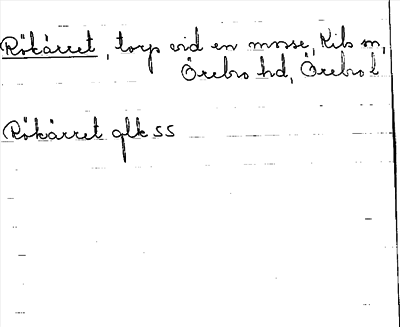 Rökärret, torp vid en mosse, Kils sn,
Örebro hd, Örebro l
Rökärret glk SS